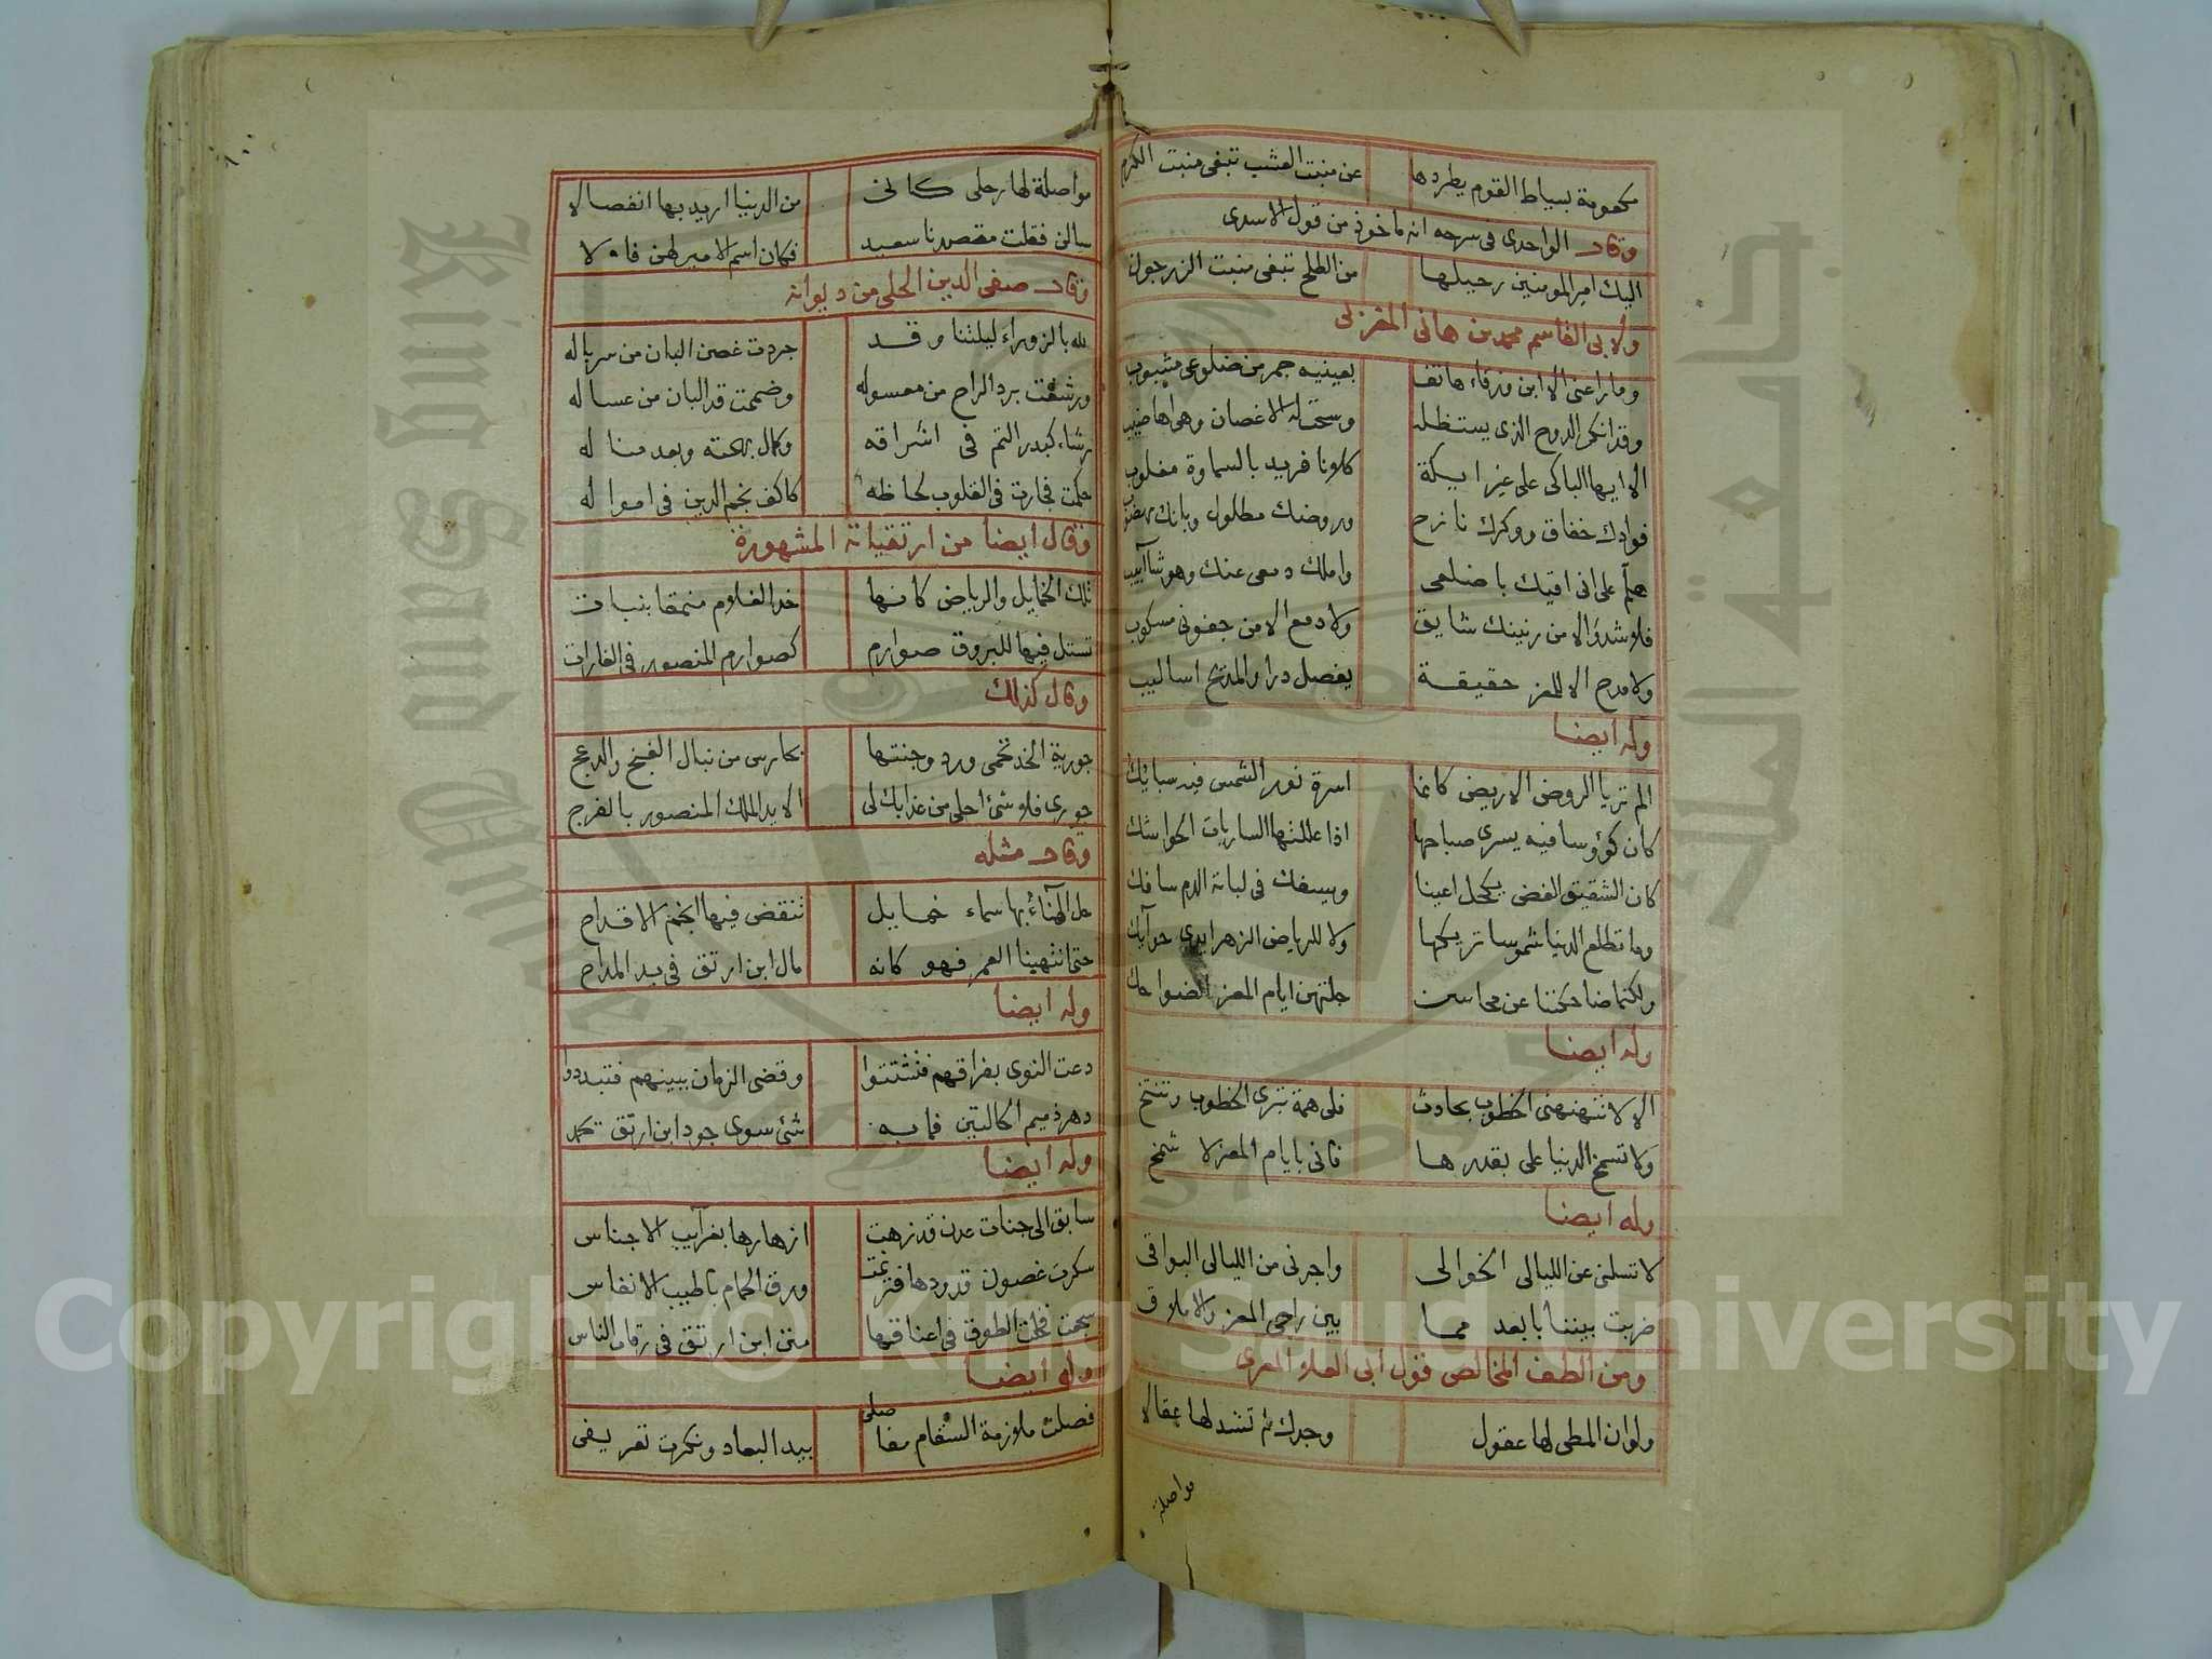 مكعومة بسياط القوم يطردها عن منبت العشب تبغى منبت الكرم
وقال الواحدى فى شرحه انه ماخوذ من قول الاسدى
اليك امير المومنين رحيلها من الطلح تبغى منبت الزرجون
ولابى القاسم محمد بن هانى المغربى
وما راعنى الا ابن ورقاء هاتف بعينيه جمر من ضلوعى مشبوب
وقد انكر الدوح الذى يستظله وسحت له الاغصان وهى اهاضيب
الا ايها الباكى على غير ايكة كلانا فريد بالسماوة مغلوب
فوادك خفاق ووكرك نازح وروضك مطلول وبانك مهضوب
هلم على انى اقيك باضلعى واملك دمعى عنك وهو شآبيب
فلا شدو الا من رنينك شايق ولا دمع الا من جفونى مسكوب
ولا مدح الا للمعز حقيقة يفصل درا والمديح اساليب
وله ايضا
الم تريا الروض الاريض كانما اسرة نور الشمس فيه سبائك
كان كؤوسا فيه يسرى صباحها اذا عللتها الساريات الحواشك
كان الشقيق الغض يكحل اعينا ويسفك فى لباته الدم سافك
وما تطلع الدنيا شموسا تريكها ولا للرياض الزهر ايدى حوآيك
ولكنما ضاحكتنا عن محاسن جلتهن ايام المعز الضواحك
وله ايضا
الا لا تنهنهنى الخطوب بحادث فلى همة تبرى الخطوب وتنتخ
ولا تشمخ الدنيا على بقدرها فانى بايام المعز لا شمخ
وله ايضا
لا تسلنى عن الليالى الخوالى واجرنى من الليالى البواقى
ضربت بيننا بابعد مما بين راجى المعز والاملاق
ومن الطف المخالص قول ابى العلاء المعرى
ولو ان المطى لها عقول وجدك لم تشد لها عقالا
مواصلة
مواصلة لها رحلى كانى من الدنيا اريد بها انفصالا
سالن فقلت مقصدنا سعيد فكان اسم الامير لهن فالا
وقال صفى الدين الحلى من ديوانه
لله بالزوراء ليلتنا وقد جردت غصن البان من سرباله
ورشفت برد الراح من معسوله وضممت قد البان من عساله
رشاء كبدر التم فى اشراقه وكمال بهجته وبعد مناله
حكمت فجارت فى القلوب لحاظه كاكف نجم الدين فى امواله
وقال ايضا من ارتقياته المشهورة
تلك الخمايل والرياض كانها خد الغلام منمقا بنبات
تستل فيها للبروق صوارم كصوارم المنصور فى الغارات
وقال كذلك
جورية الخد تحمى ورد وجنتها بحارس من نبال الغنج والدعج
جورى فلا شئ احلى من عذابك لى الا يد الملك المنصور بالفرج
وقال مثله
حل الهنآء بها سماء خمايل تنقض فيها انجم الاقداح
حتى انتهينا العمر فهو كانه مال ابن ارتق فى يد المداح
وله ايضا
دعت النوى بفراقهم فتشتتوا وقضى الزمان ببينهم فتبددوا
دهر ذميم الحالتين فما به شئ سوى جود ابن ارتق يحمد
وله ايضا
سابق الى جنات عدن قد زهت ازهارها بغرآيب الاجناس
سكرت غصون قدودها فترنمت ورق الحمام باطيب الانفاس
سجعت فخلت الطوق فى اعناقها منن ابن ارتق فى رقاب الناس
وله ايضا
فصلت ملازمة السقام مفاصلى بيد البعاد ونكرت تعريفى
Copyright © King Saud University
King Saud University
جامعة الملك سعود